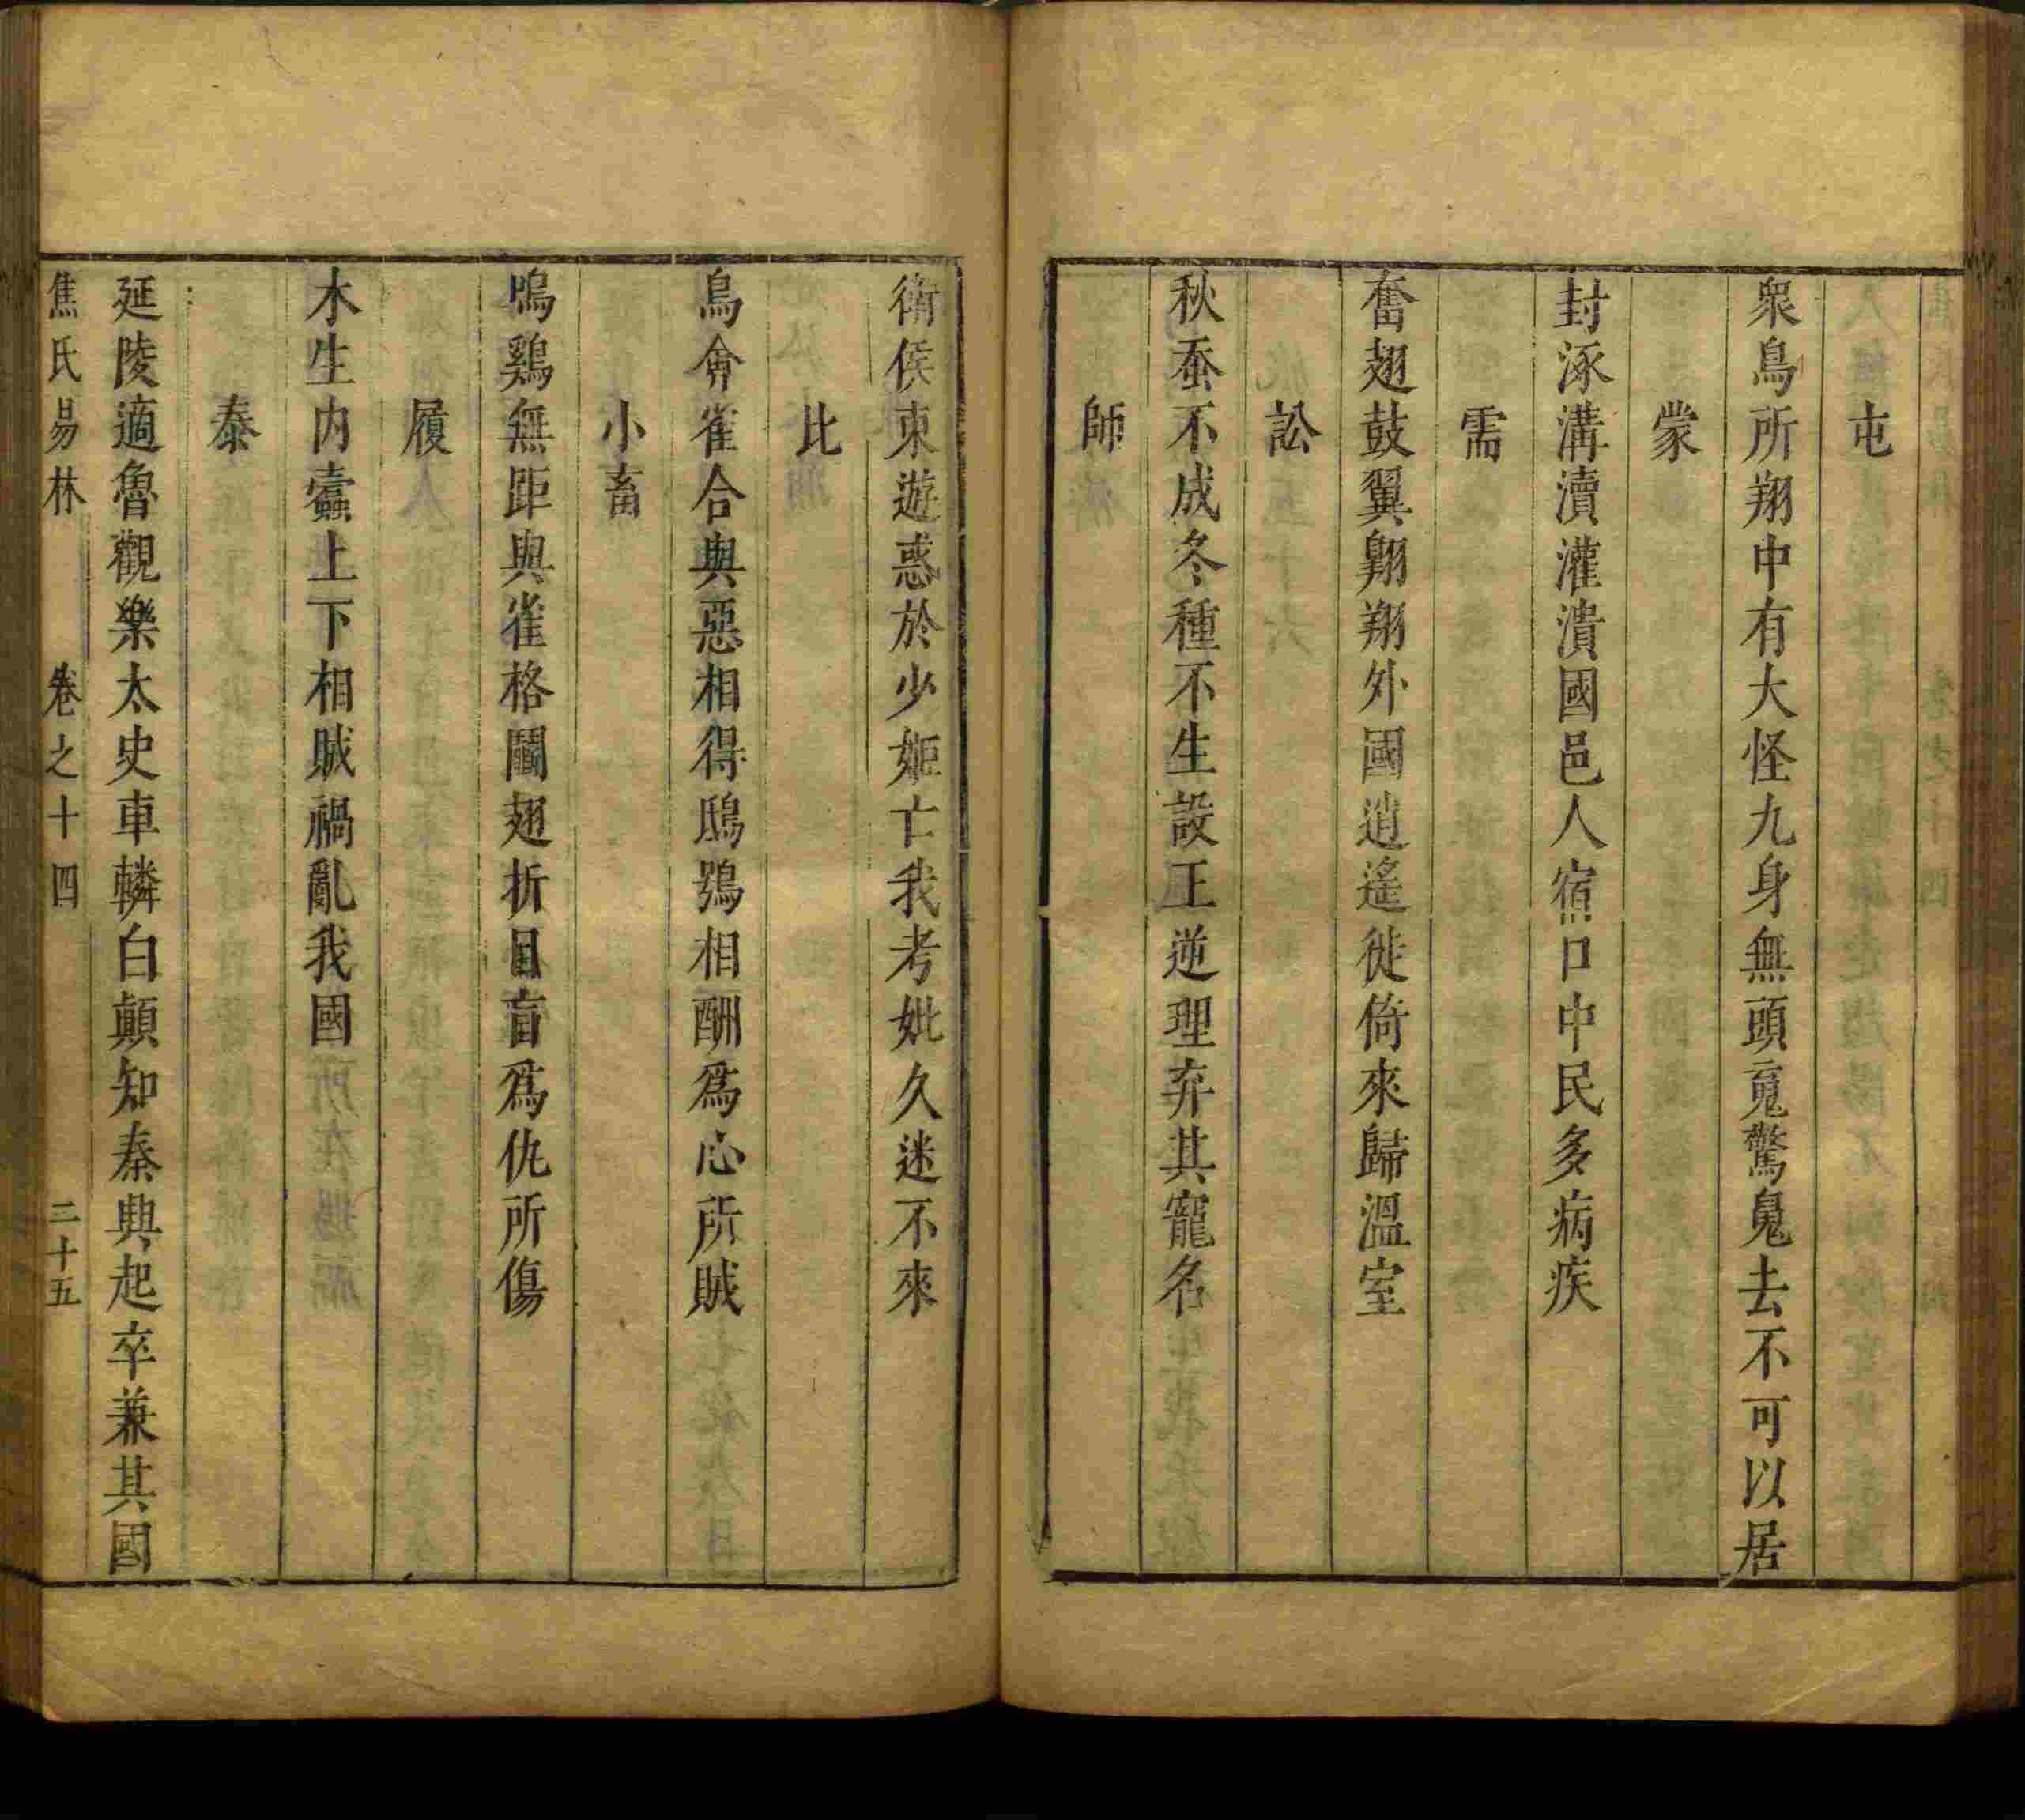 屯
衆鳥所翔中有大怪九身無頭䰟驚䰟去不可以居
蒙
封涿溝瀆灌潰國邑人宿口中民多病疾
需
奮翅鼓翼翺翔外國逍遙徙倚來歸溫室
訟
秋蚕不成冬種不生設王逆理弃其寵名
師
衛侯東遊惑於少姬亡我考妣久迷不來
比
鳥會雀合與惡相得鴟鴞相酬爲心所賊
小畜
鳴鷄無距與雀格鬭翅折目盲爲仇所傷
履
木生内蠹上下相賊禍亂我國
泰
延陵適魯觀樂太史車轔白顛知秦興起卒兼其國
焦氏易林 卷之十四 二十五